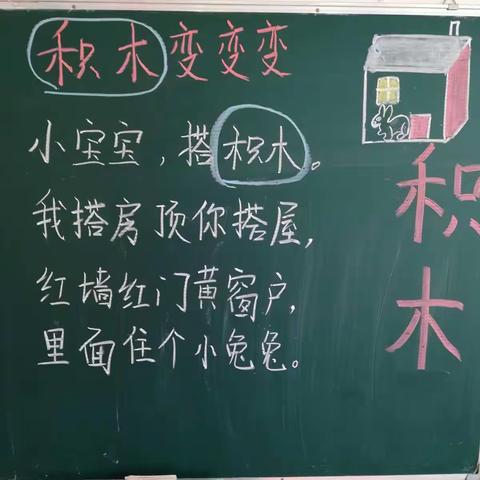 积木变变变
小宝宝，搭积木。
我搭房顶你搭屋，
红墙红门黄窗户，
里面住个小兔兔。
积
木